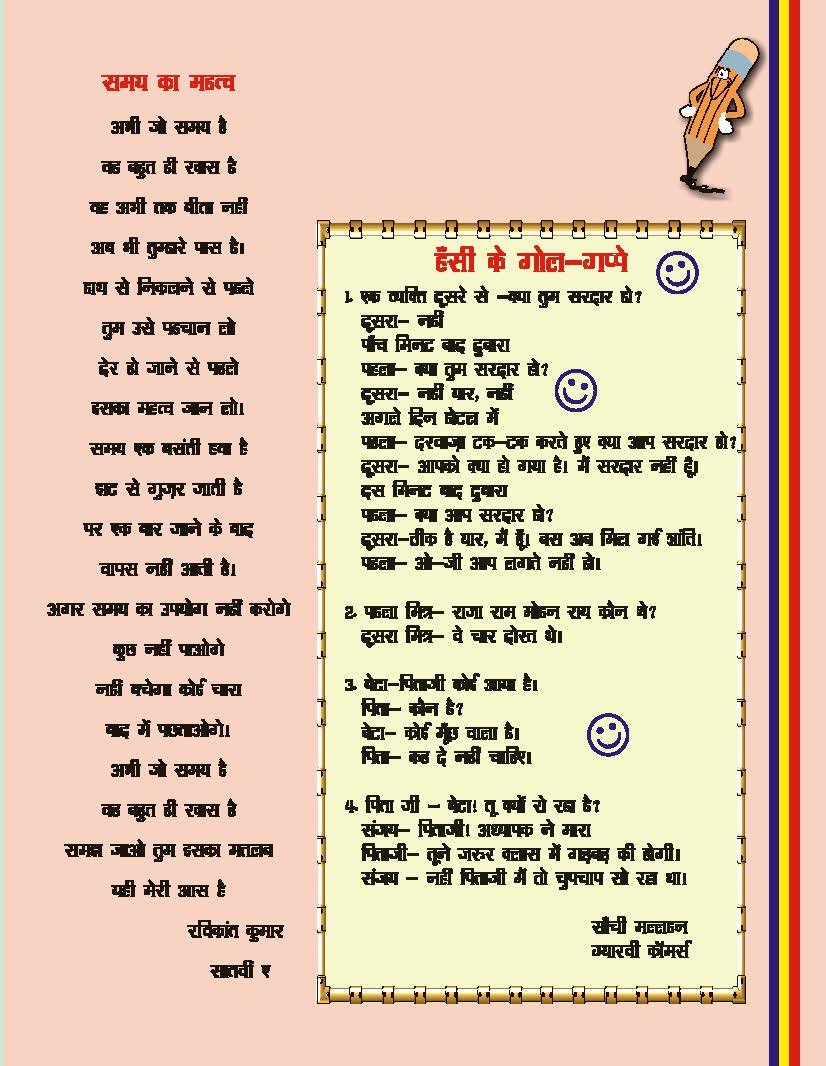 समय का महत्व
अभी जो समय है
वह बहुत ही खास है
वह अभी तक बीता नहीं
अब भी तुम्हारे पास है।
हाथ से निकलने से पहले
तुम उसे पहचान लो
देर हो जाने से पहले
इसका महत्व जान लो।
समय एक बसंती हवा है
झट से गुज़र जाती है
पर एक बार जाने के बाद
वापस नहीं आती है।
अगर समय का उपयोग नहीं करोगे
कुछ नहीं पाओगे
नहीं बचेगा कोई चारा
बाद में पछताओगे।
अभी जो समय है
वह बहुत ही खास है
समझ जाओ तुम इसका मतलब
यही मेरी आस है
रविकांत कुमार
सातवीं ए
हँसी के गोल-गप्पे
1. एक व्यक्ति दूसरे से -क्या तुम सरदार हो?
दूसरा- नहीं
पाँच मिनट बाद दुबारा
पहला- क्या तुम सरदार हो?
दूसरा- नहीं यार, नहीं
अगले दिन होटल में
पहला- दरवाज़ा टक-टक करते हुए क्या आप सरदार हो?
दूसरा- आपको क्या हो गया है। मैं सरदार नहीं हूँ।
दस मिनट बाद दुबारा
पहला- क्या आप सरदार हो?
दूसरा-ठीक है यार, मैं हूँ। बस अब मिल गई शांति।
पहला- ओ-जी आप लगते नहीं हो।
2. पहला मित्र- राजा राम मोहन राय कौन थे?
दूसरा मित्र- वे चार दोस्त थे।
3. बेटा-पिताजी कोई आया है।
पिता- कौन है?
बेटा- कोई मूँछ वाला है।
पिता- कह दे नहीं चाहिए।
4. पिता जी - बेटा! तू क्यों रो रहा है?
संजय- पिताजी! अध्यापक ने मारा
पिताजी- तूने जरुर क्लास में गड़बड़ की होगी।
संजय - नहीं पिताजी मैं तो चुपचाप सो रहा था।
साँची मल्हन
ग्यारवी कॉमर्स